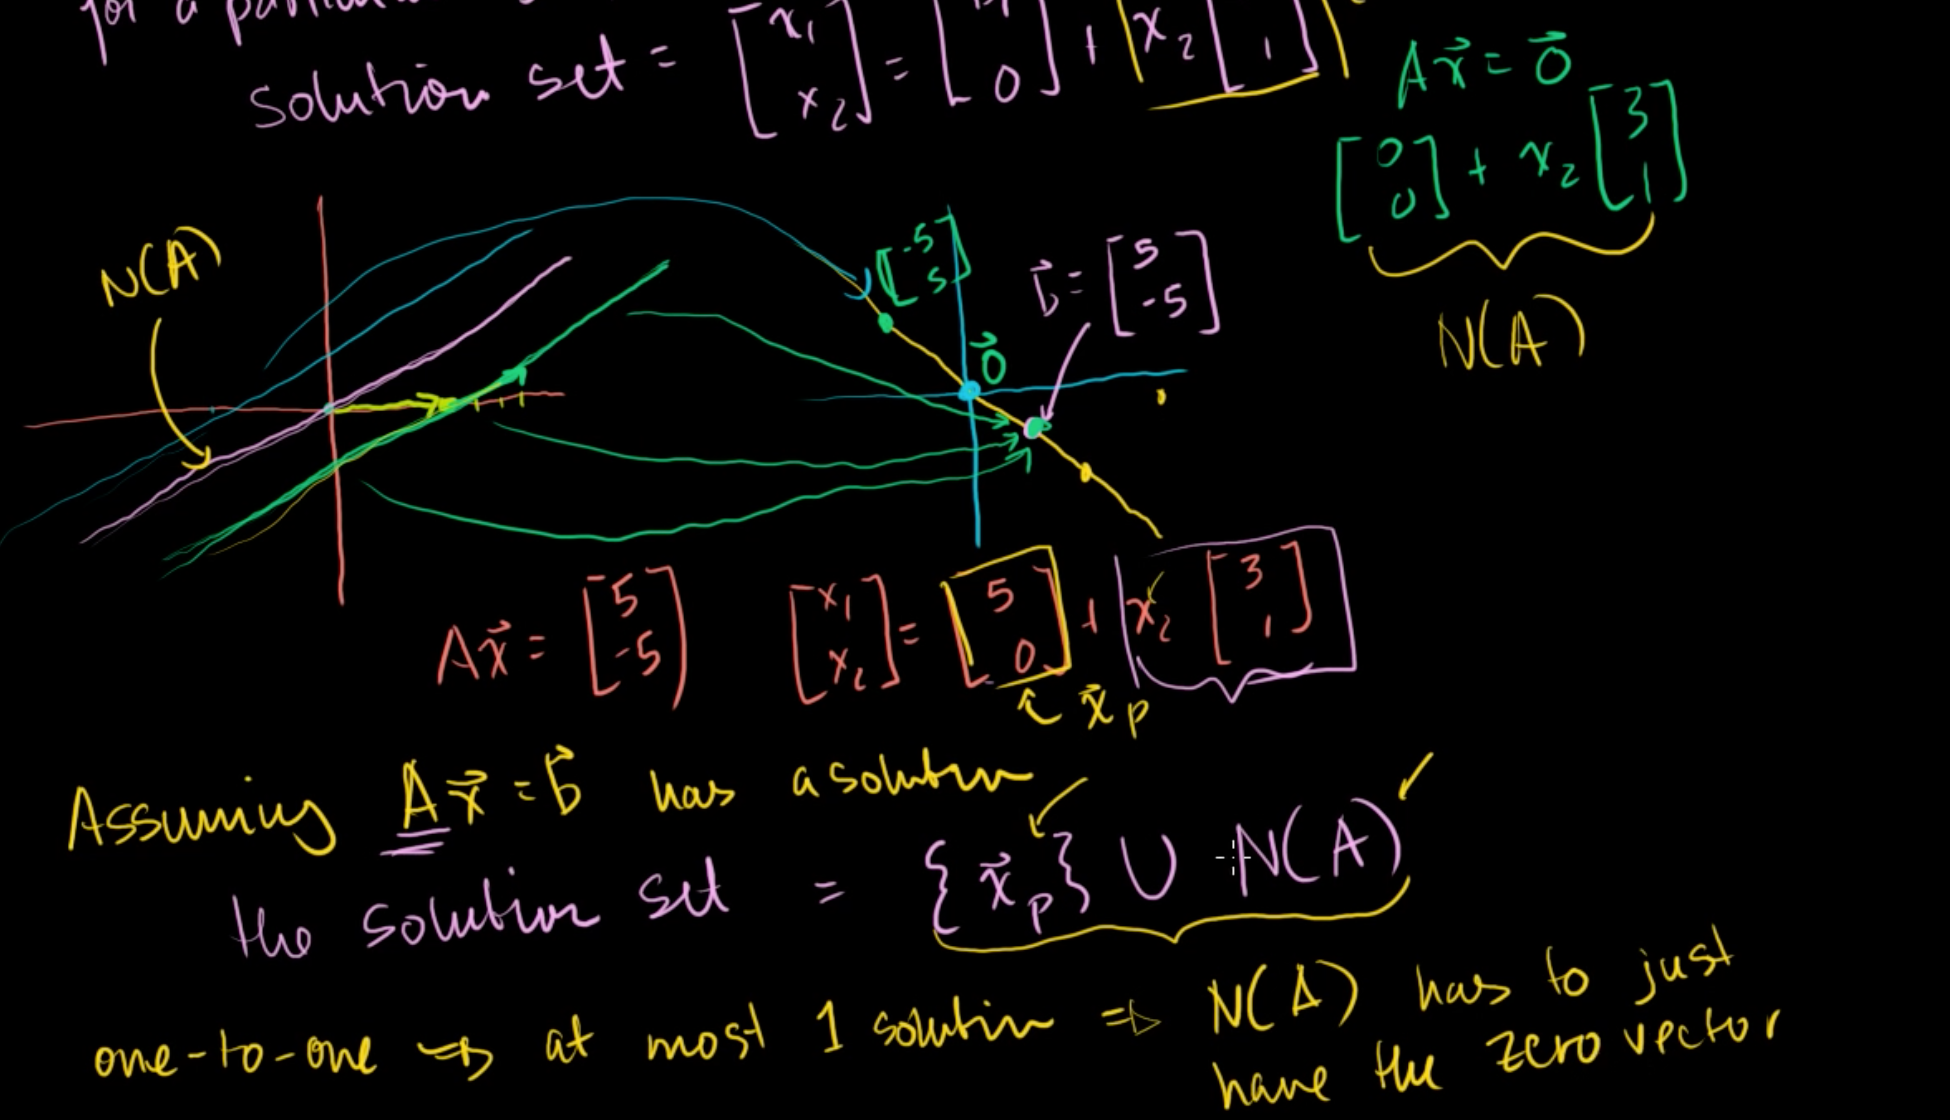 for a
solution set = [x₁ x₂] = [ 0] + x₂ [ 1]
Ax⃗ = 0⃗
[0 0] + x₂ [3 1]
N(A)
N(A)
[-5 5]
b⃗ = [5 -5]
0⃗
Ax⃗ = [5 -5] [x₁ x₂] = [5 0] + x₂ [3 1]
x⃗p
Assuming Ax⃗ = b⃗ has a solution
the solution set = {x⃗p} ∪ N(A)
one-to-one ⇒ at most 1 solution ⇒ N(A) has to just
have the zero vector